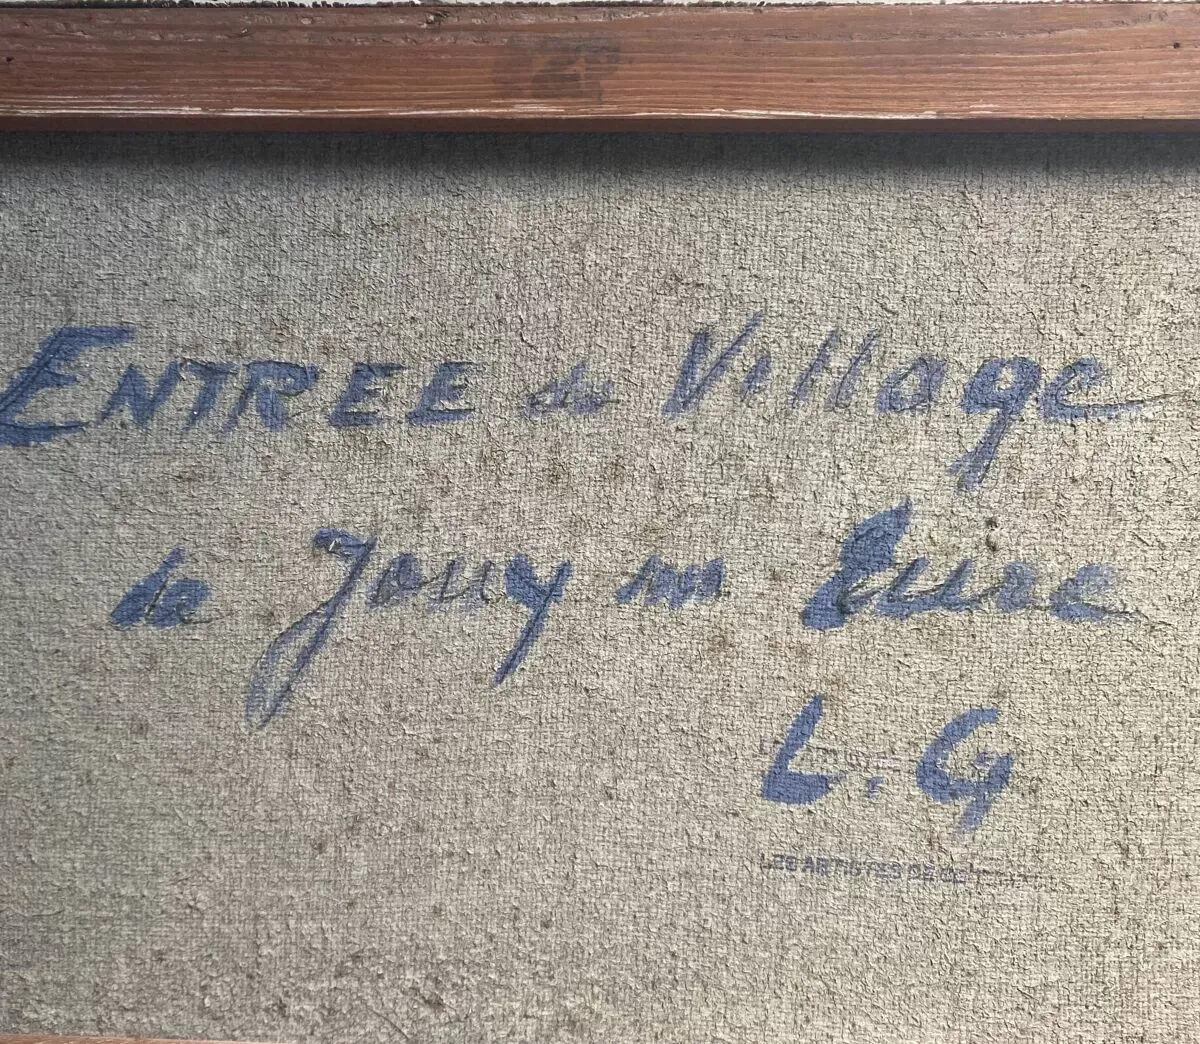 ENTREE du Village
de Jouy sur Eure
L. G
ARTISTES DE